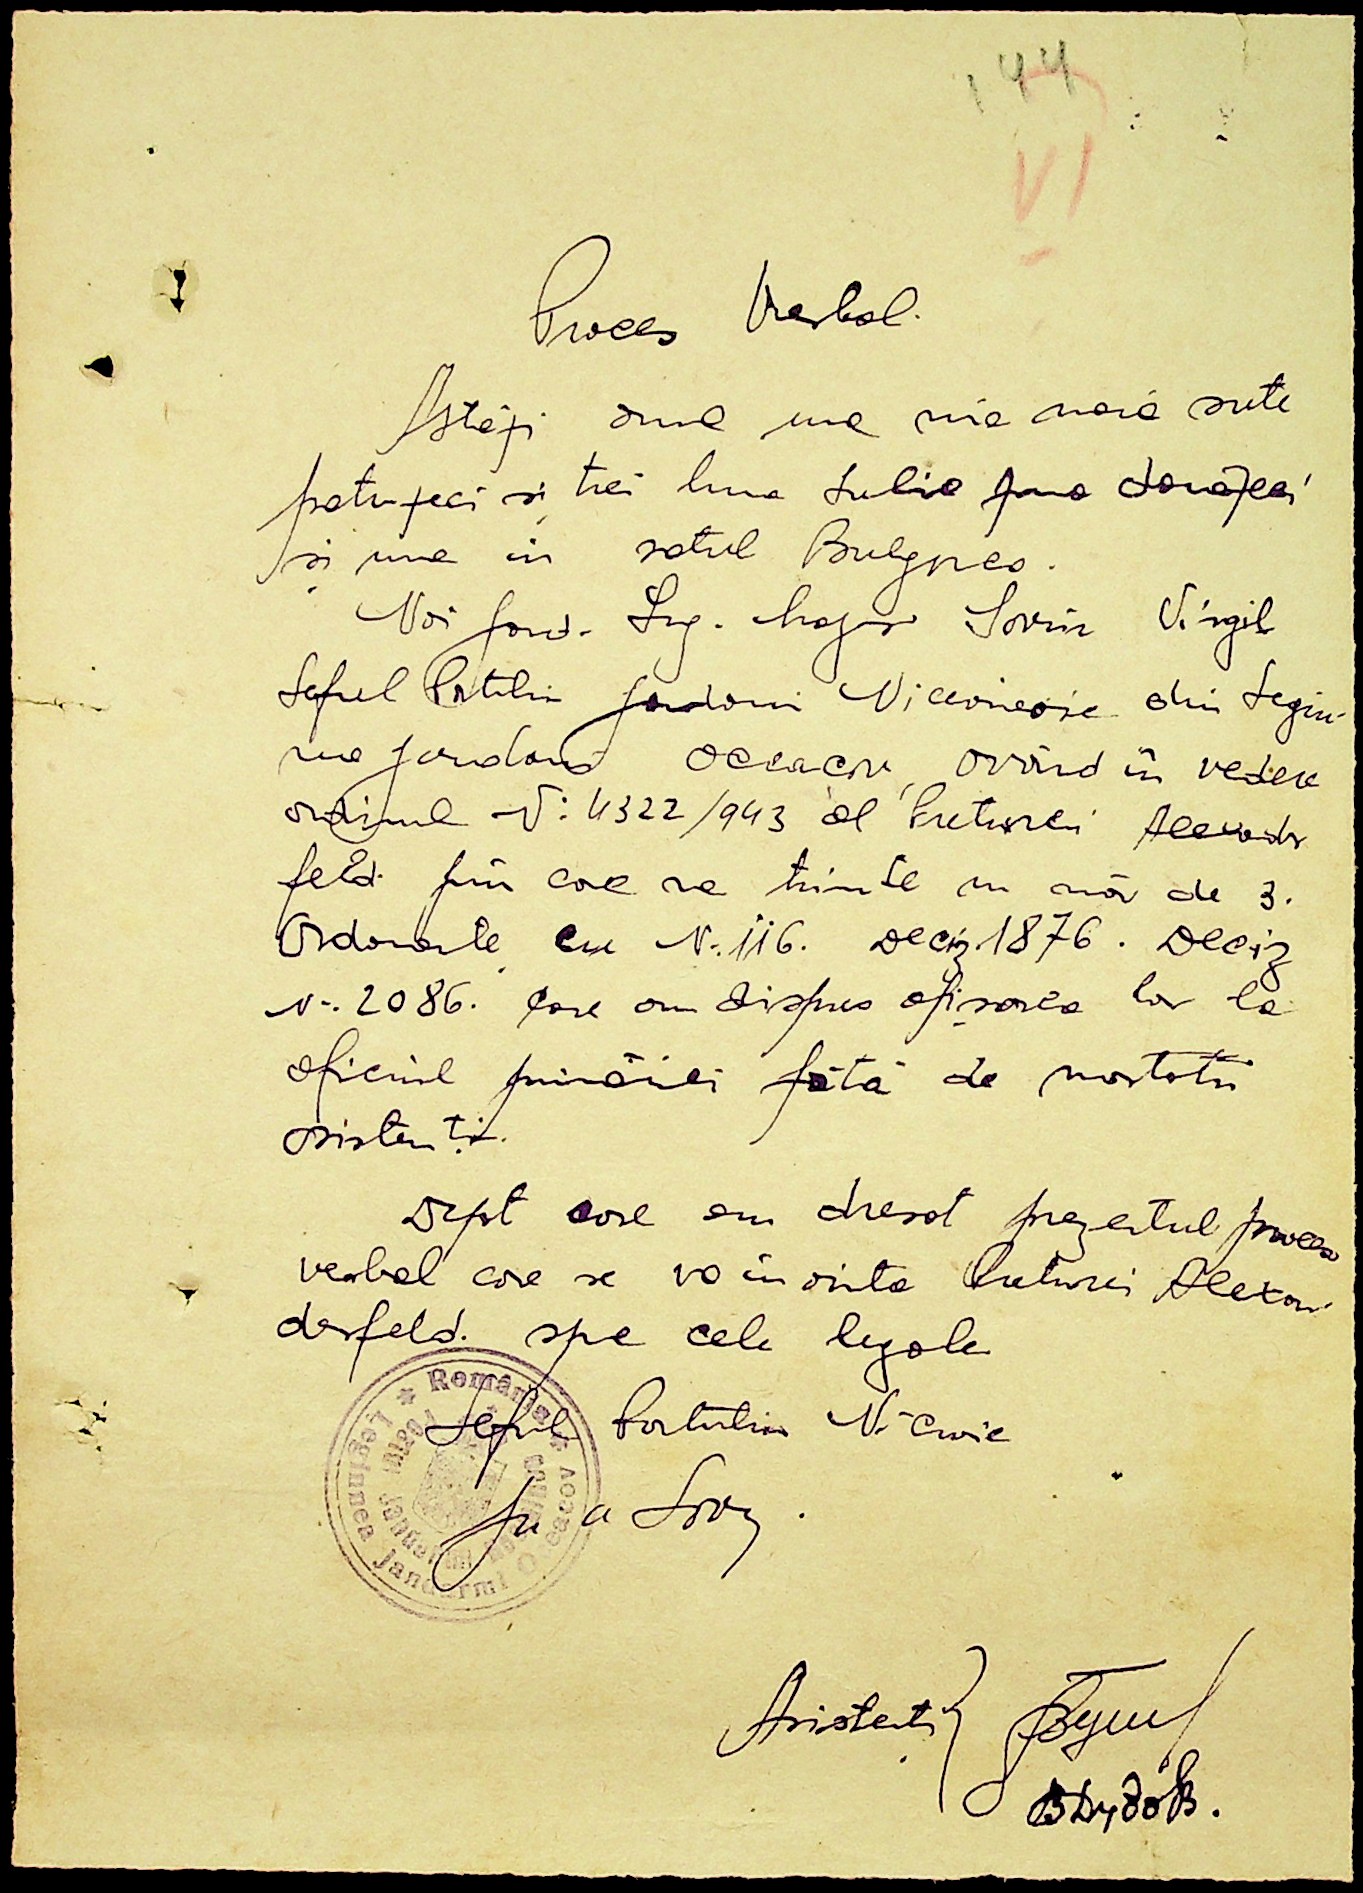 144
VI
Proces Verbal.
Astăzi anul una mie nouă sute
patruzeci și trei luna Iulie ziua douăzeci
și una în satul Bulgarca.
Noi Jand. Srg. Major Sorin Virgil
Șeful Postului Jandarmi din Legiu-
nea Jandarmi Oceacov, având în vedere
ordinul N: 4322/943 al Preturei Alexander
feld. prin care ne trimite un măr de 3.
Ordonanțe cu N. 116. Deciz. 1876. Deciz
N-. 2086. Care am dispus afișarea lor la
oficiul primăriei față de martorii
asistenți.
Drept care am dresat prezentul proces
verbal care se va înainta Preturei Alexan-
derfeld. spre cele legale
Șeful Postului
România
Legiunea Jandarmi Oceacov
Postul Jandarmi
Asistenți